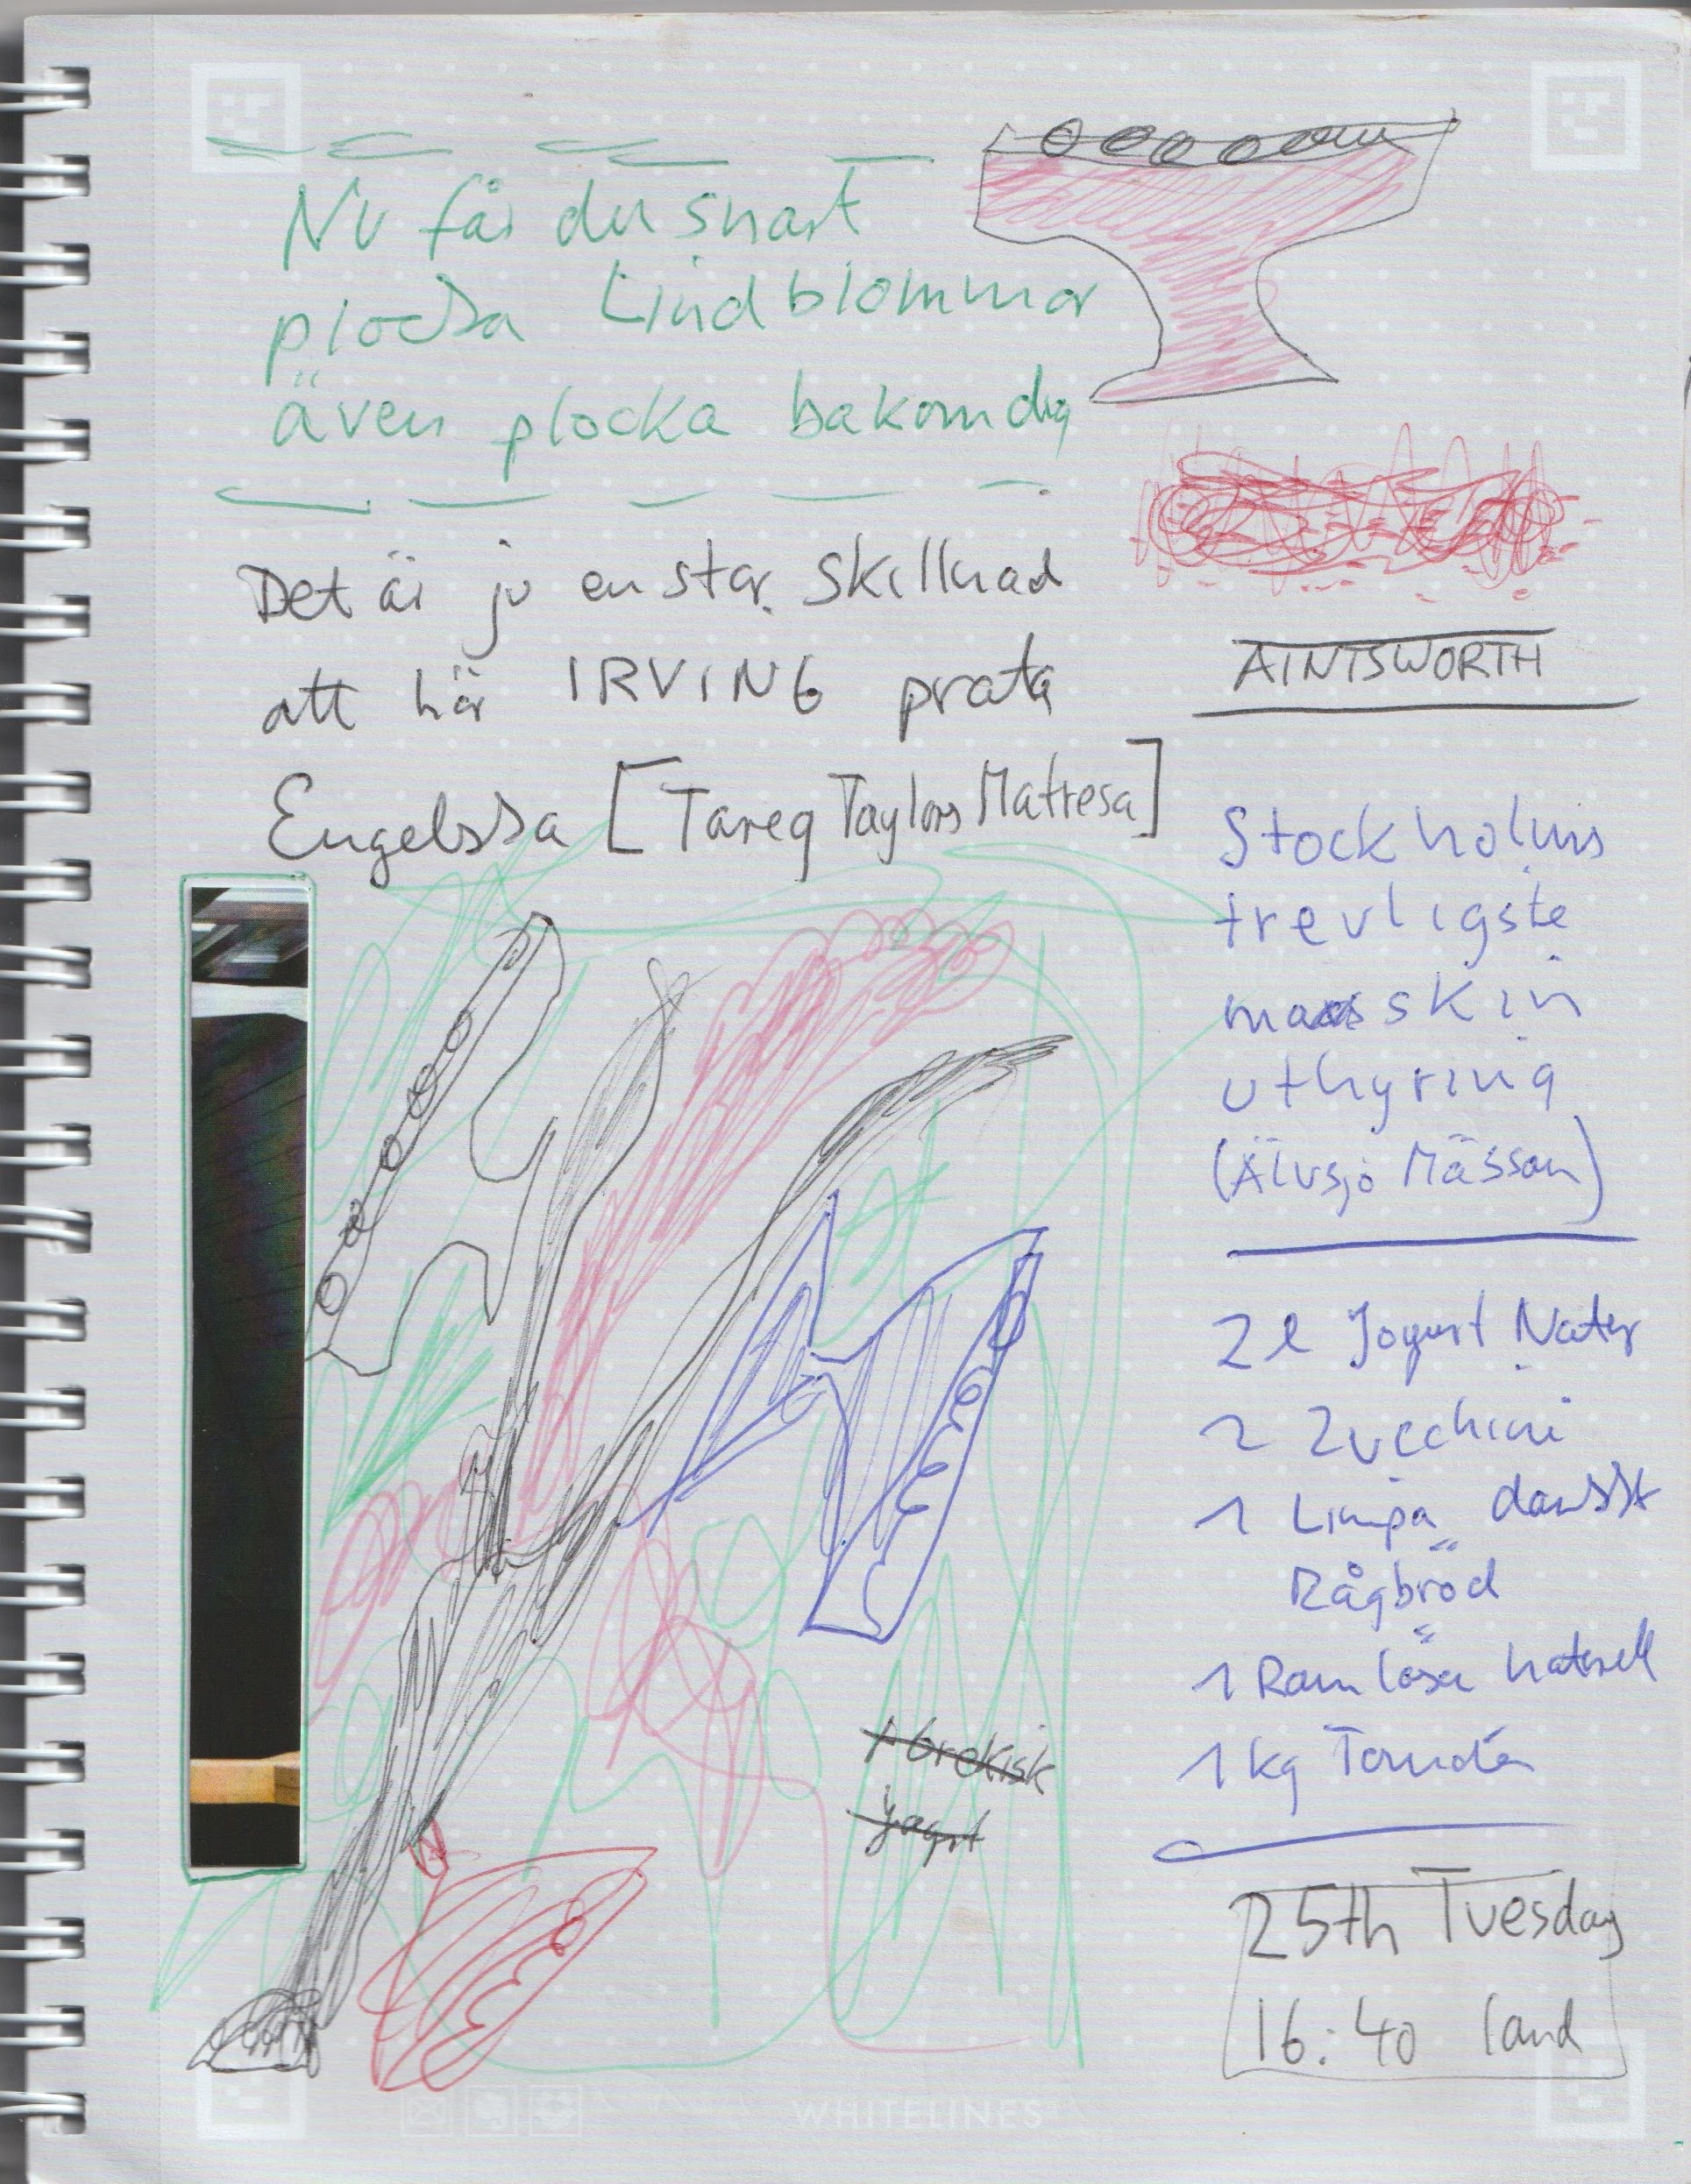 Nu får du snart
plocka Lindblommor
även plocka bakom dig
Det är ju en stor skillnad
att hör IRVING prata
Engelska [Tareq Taylors Matresa]
AINTSWORTH
Stockholms
trevligste
maskin
uthyring
(Älvsjö Mässan)
2 l Jogurt Natur
2 Zucchini
1 Limpa danskt
Rågbröd
1 Ramlösa naturell
1 kg Tomater
1 Grekisk
Jogurt
25th Tuesday
16:40 land
WHITELINES